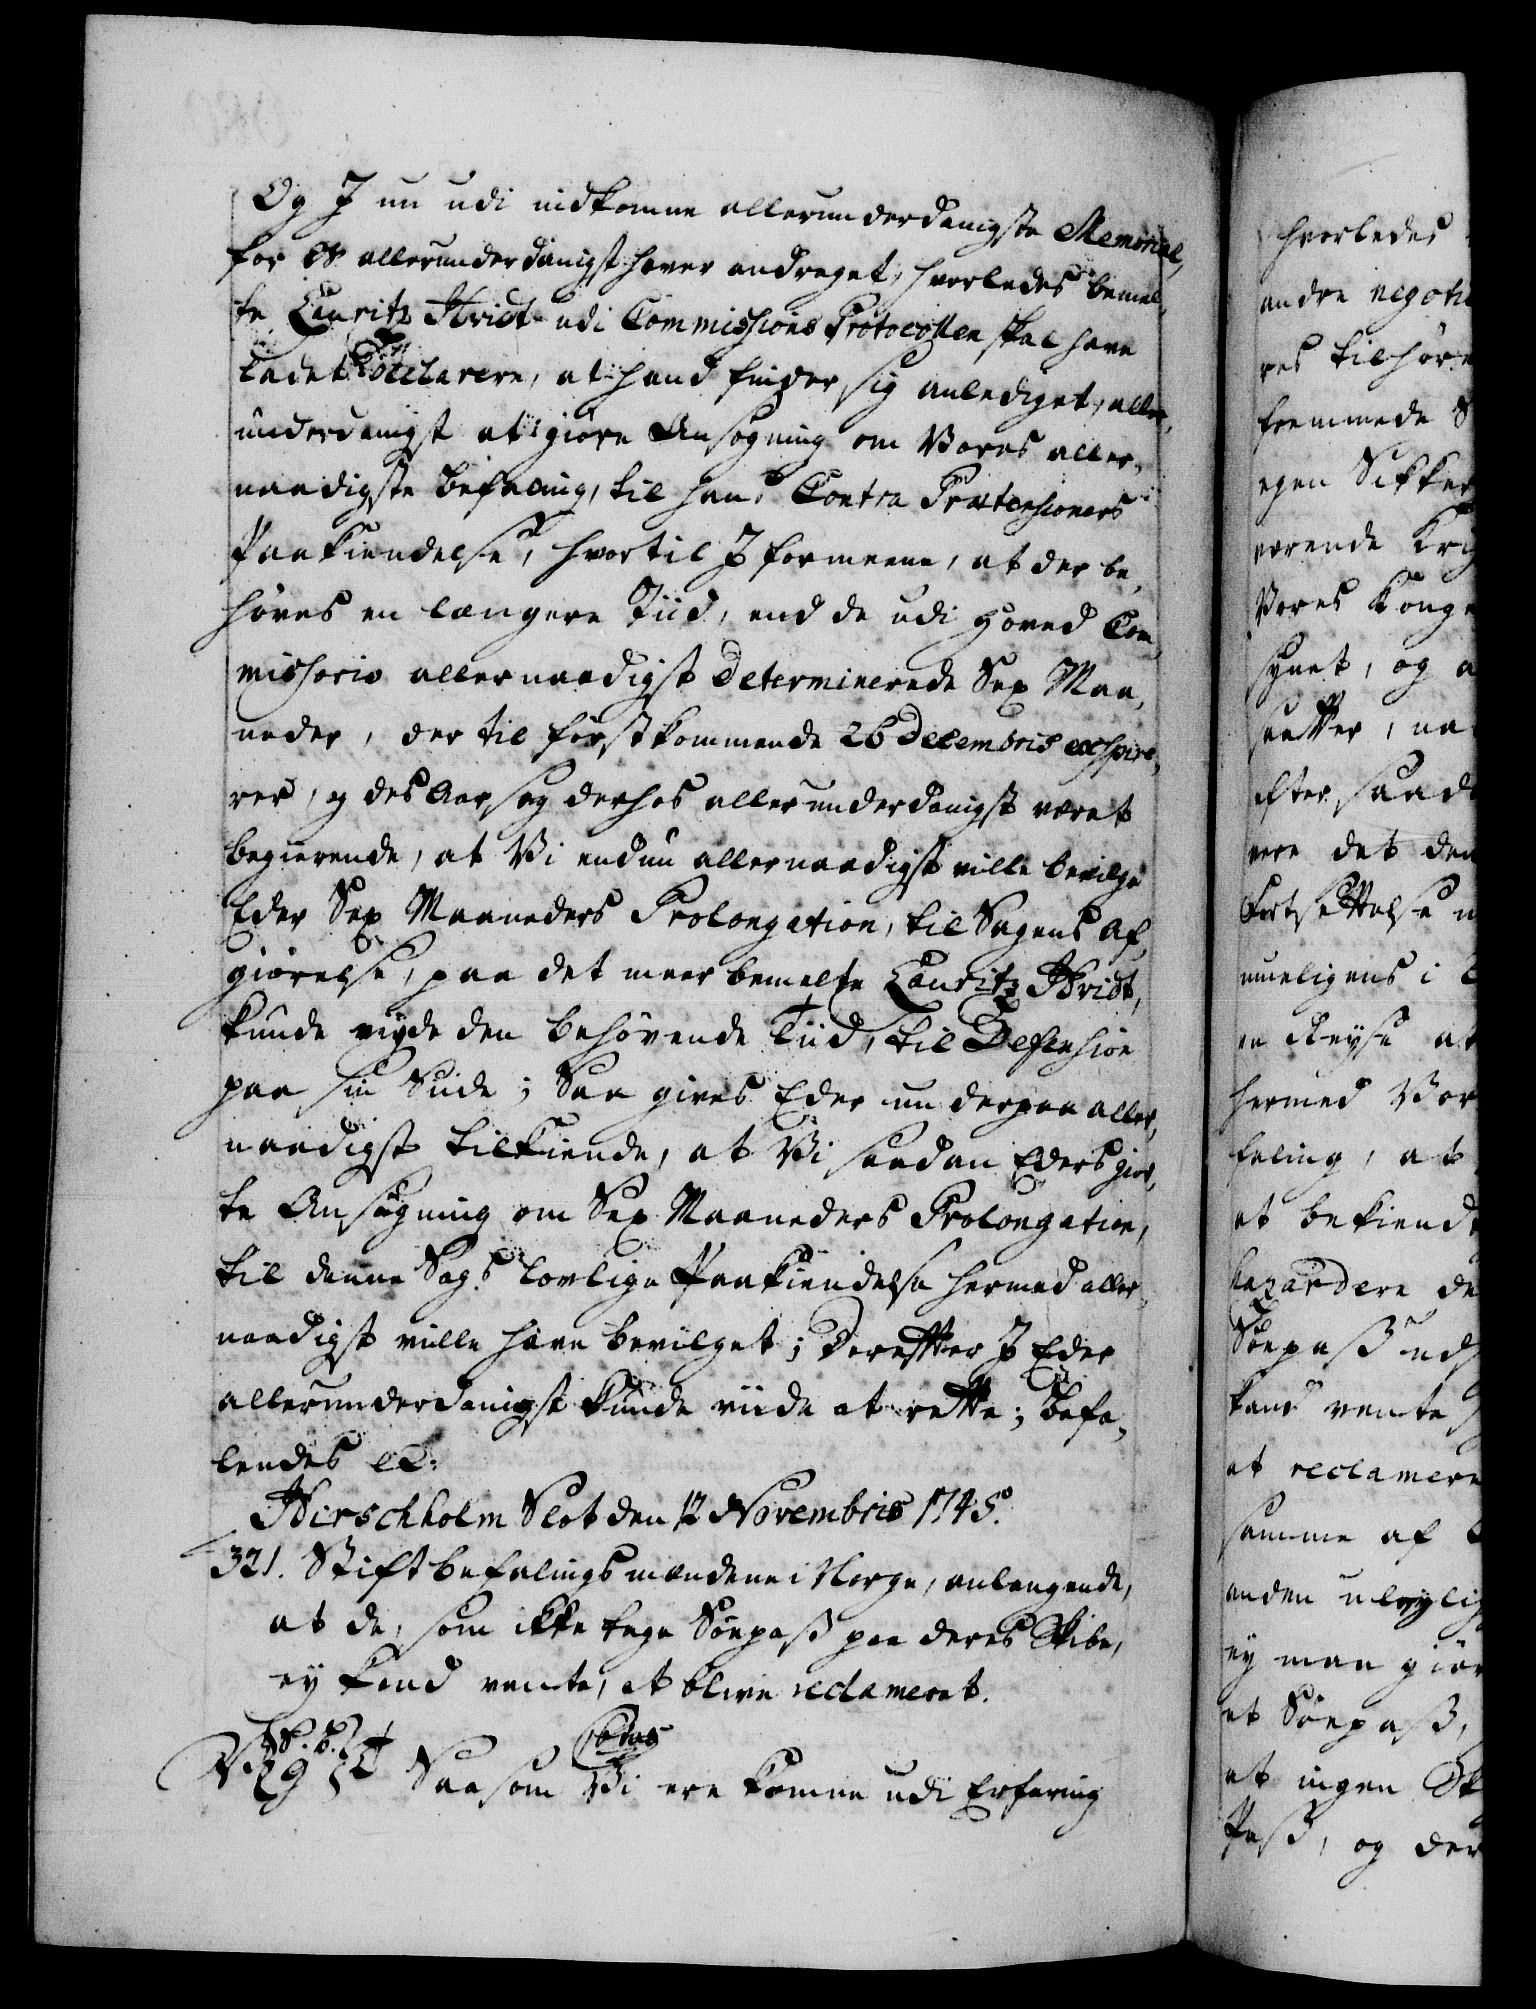 Og I nu udi indkomne allerunderdanigste Memorial,
for Os allerunderdanigst haver andraget, hvorledes bemel,
te Lauritz Hvidt udi Commissions Protocollen skal have
ladet declarere, at hand finder sig anlediget, aller,
underdanigst at giøre Ansøgning om Vores aller,
naadigste befaling, til hans Contra Prætensioners
Paakiendelse, hvortil I formeene, at der be,
høves en længere Tiid, end de udi Hoved Com,
missorio allernaadigst determinerede Sex Maa,
neder, der til førstkommende 26 Decembris exspire,
rer, og des Aarsag derhos allerunderdanigst været
begierende, at Vi endnu allernaadigst ville bevilge
Eder Sex Maaneders Prolongation, til Sagens Af,
giørelse, paa det meer bemelte Lauritz Hvidt,
kunde nyde den behøvende Tiid, til Defension
paa sin Siide; Saa gives Eder nu derpaa aller,
naadigst tilkiende, at Vi saadan Eders gior,
te Ansøgning om Sex Maaneders Prolongation,
til denne Sags lovlige Paakiendelse hermed aller,
naadigst ville have bevilget; Derefter I Eder
allerunderdanigst kunde viide at rette; Befa,
lendes etc:
Hirschholm Slot den 12 Novembris 1745.
321. Stiftbefalingsmændene i Norge, anlangende,
at de, som ikke tage Søepass paa deres Skibe,
ey kand vente, at blive reclameret.
Saasom Vi ere komne udi Erfaring
hvorledes
andre negoti
res tilhøre
fremmede S
egen Sikker
værende Kri
Vores Konge
synet, og a
sætter, na
efter saad
vere det den
Fortsettelse
mueligens i
en Reyse at
hermed Vor
faling, at
at bekiendt
hazardere de
Søepass uds
kand vente
at reclamere
samme af
anden uleylig
ey maa giør
et Søepass,
at ingen Sk
Pass, og der